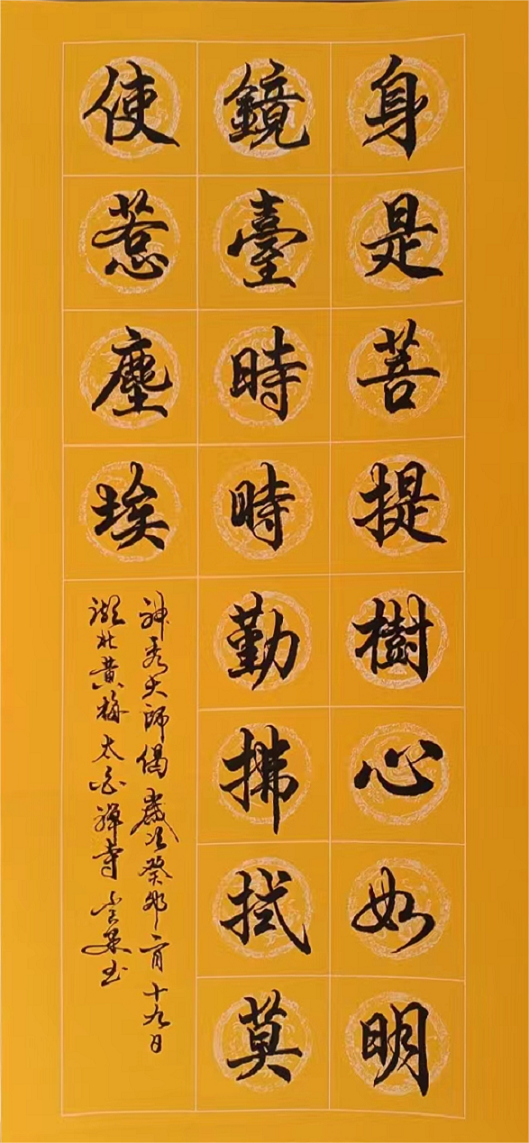 身是菩提樹心如明
鏡臺時時勤拂拭莫
使惹塵埃
神秀大師偈歲次癸卯二月十九日
湖北黄梅太白禅寺书